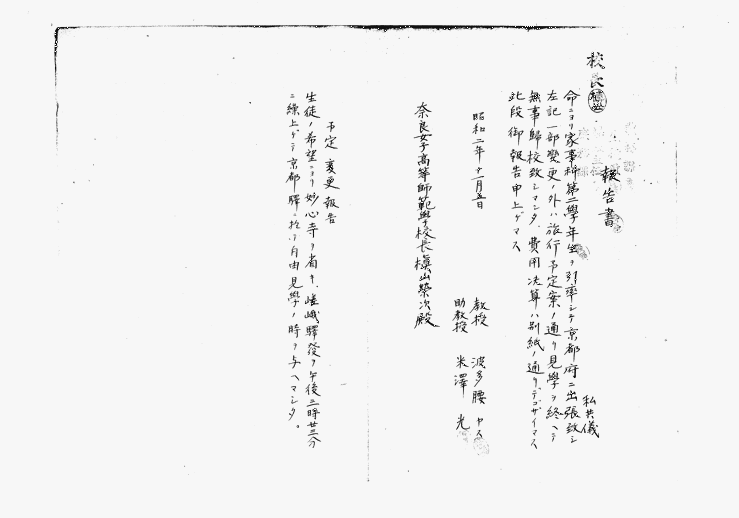 校長
報告書
私共儀
命ニヨリ家事科第二學年生ヲ引率シテ京都府ニ出張致シ
左記一部變更ノ外ハ旅行予定案ノ通リ見學ヲ終ヘテ
無事歸校致シマシタ、費用決算ハ別紙ノ通リデゴザイマス
此段御報告申上ゲマス
昭和二年十一月五日
教授 波多腰ヤス
助教授 米澤光
奈良女子高等師範學校長槇山榮次殿
予定変更報告
生徒ノ希望ニヨリ妙心寺ヲ省キ、嵯峨驛發ヲ午後二時廿三分
ニ繰上ゲテ京都驛ニ於テ自由見學ノ時ヲ与ヘマシタ。